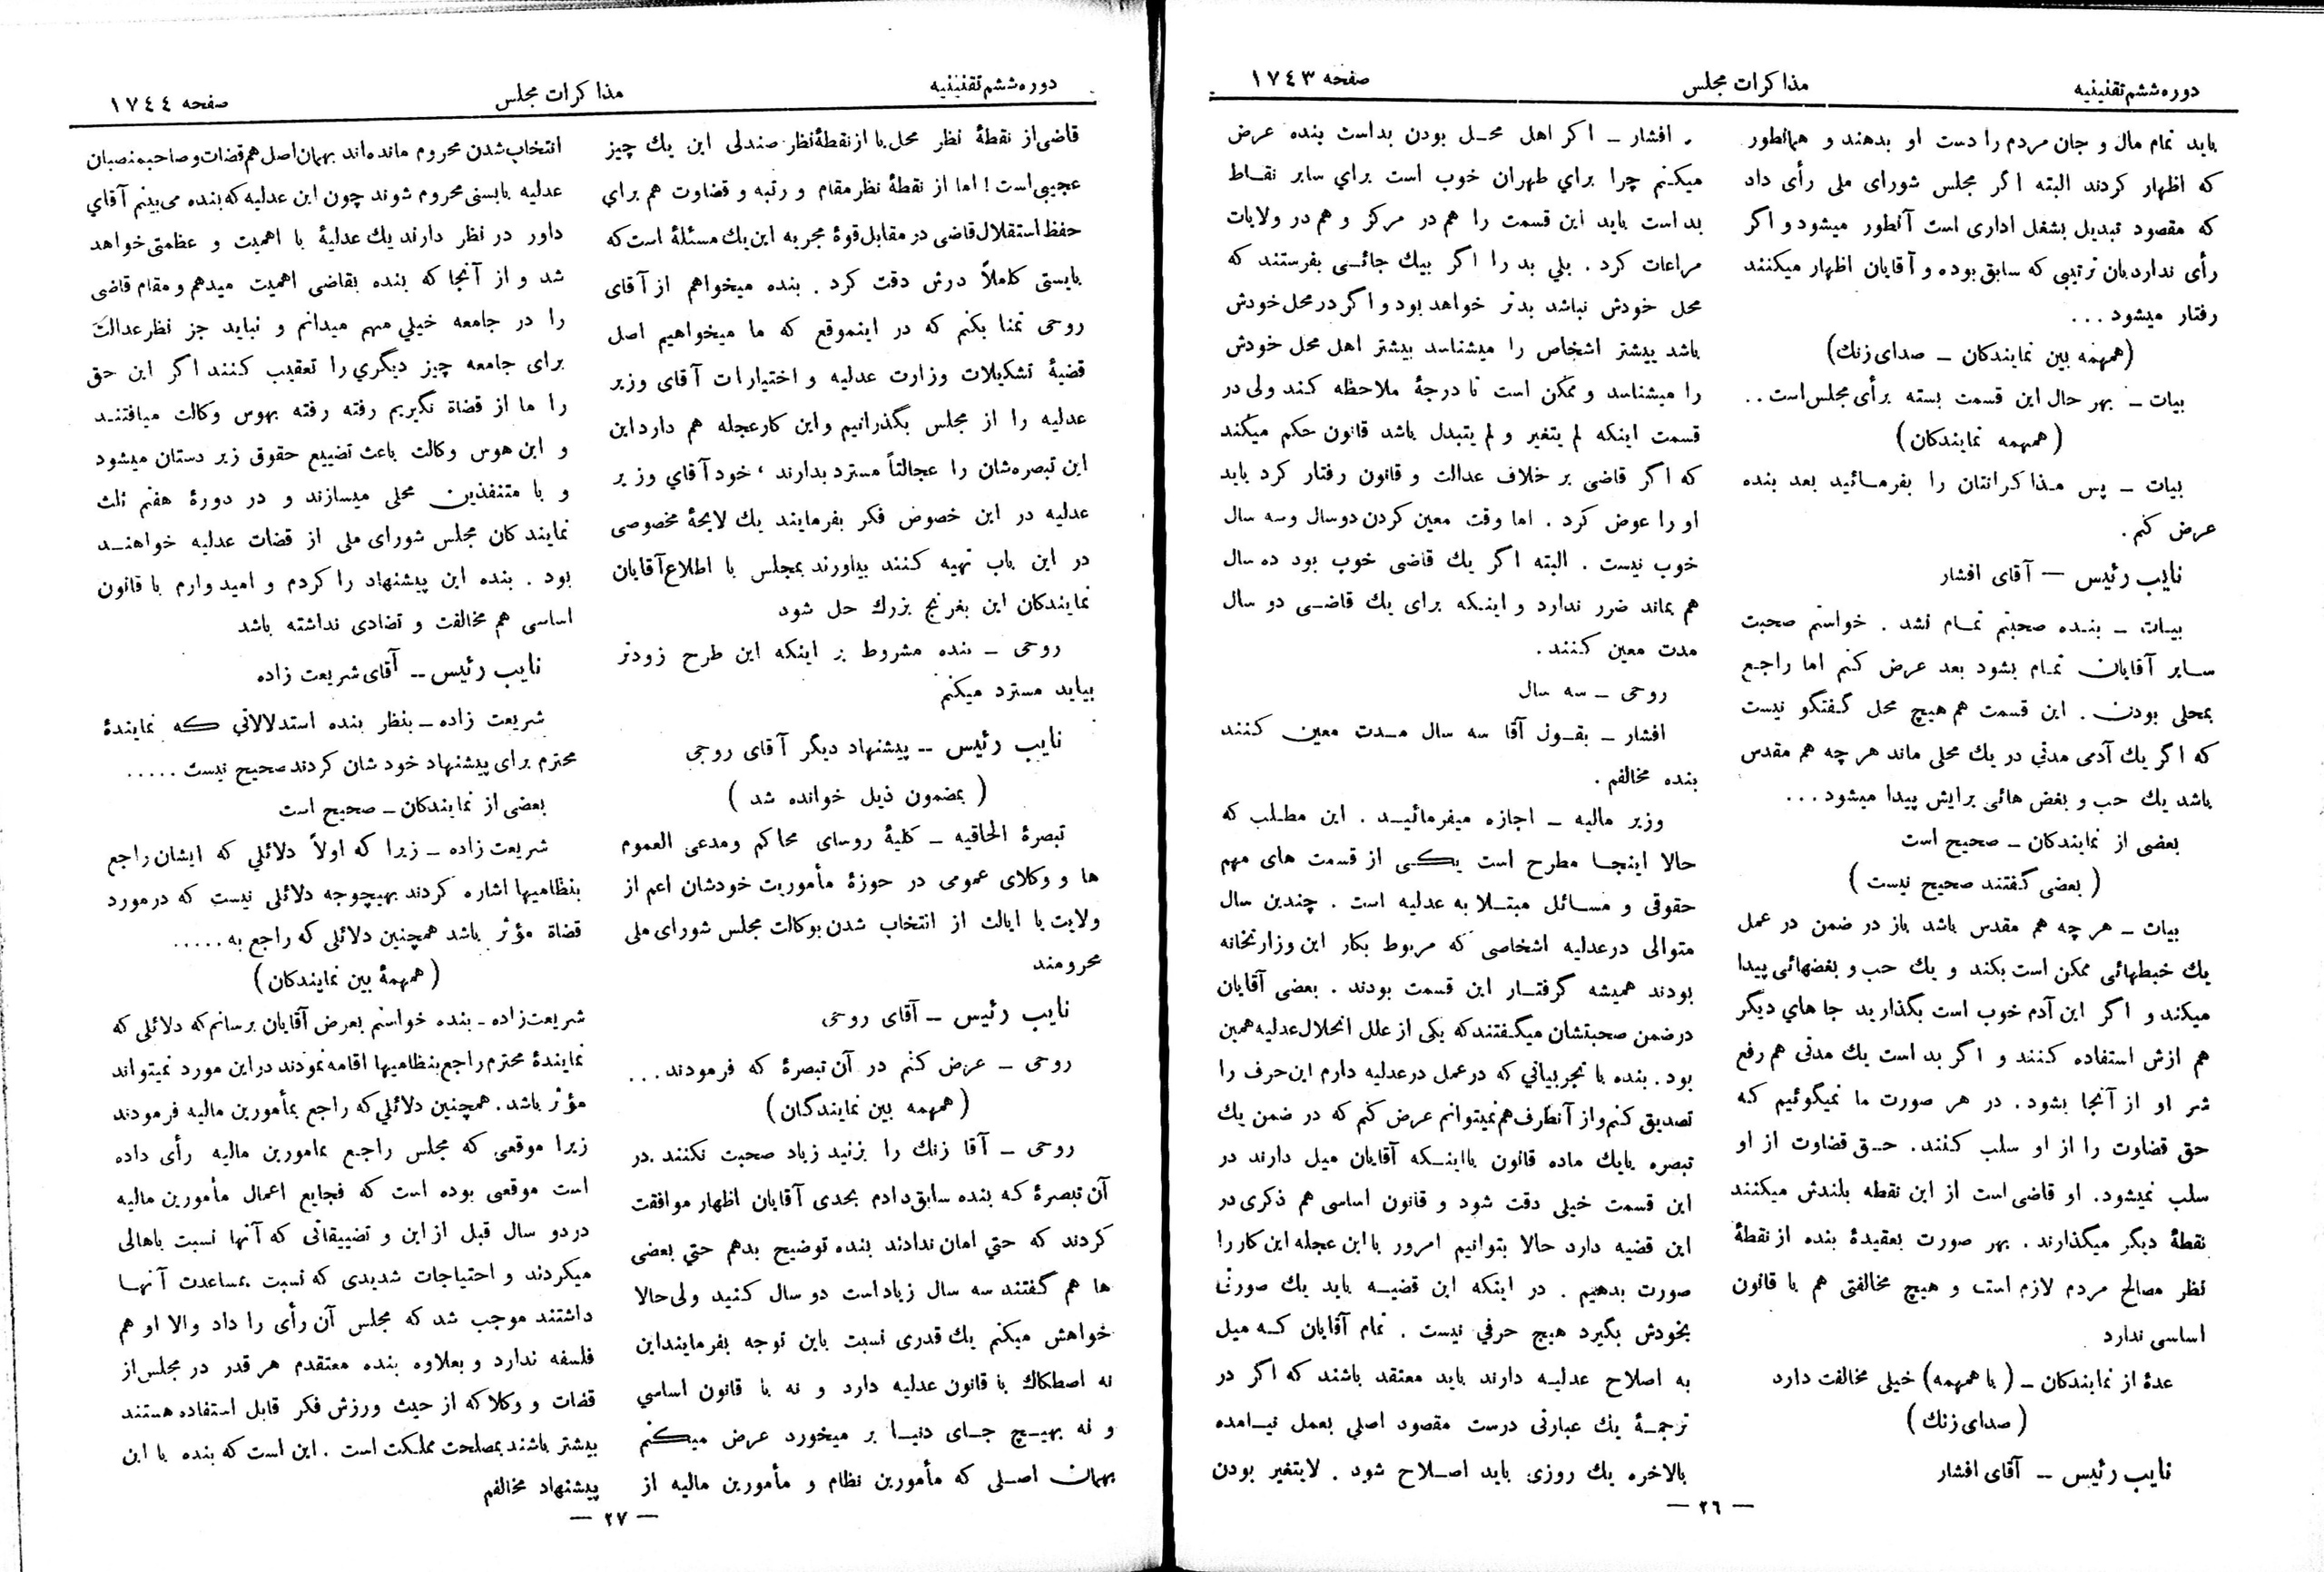 دوره ششم تقنینیه
مذاکرات مجلس
صفحه ١٧٤٣
باید تمام مال و جان مردم را دست او بدهند و همانطور
که اظهار کردند البته اگر مجلس شورای ملی رأی داد
که مقصود تبدیل بشغل اداری است آنطور میشود و اگر
رأی ندارد بان ترتیبی که سابق بوده و آقایان اظهار میکنند
رفتار میشود ...
(همهمه بین نمایندکان ـ صدای زنك)
بیات ـ بهر حال این قسمت بسته برأی مجلس است ..
(همهمه نمایندکان)
بیات ـ پس مذاکراتتان را بفرمائید بعد بنده
عرض کنم .
نایب رئیس — آقای افشار
بیات ـ بنده صحبتم تمام نشد . خواستم صحبت
سایر آقایان تمام بشود بعد عرض کنم اما راجع
بمحلی بودن . این قسمت هم هیچ محل گفتگو نیست
که اگر یك آدمی مدتی در یك محلی ماند هر چه هم مقدس
باشد یك حب و بغض هائی برایش پیدا میشود ...
بعضی از نمایندکان ـ صحیح است
( بعضی گفتند صحیح نیست )
بیات ـ هر چه هم مقدس باشد باز در ضمن در عمل
یك خبطهائی ممکن است بکند و یك حب و بغضهائی پیدا
میکند و اگر این آدم خوب است بگذارید جا هاي دیگر
هم ازش استفاده کنند و اگر بد است یك مدتی هم رفع
شر او از آنجا بشود . در هر صورت ما نمیگوئیم که
حق قضاوت را از او سلب کنند. حق قضاوت از او
سلب نمیشود. او قاضی است از این نقطه بلندش میکنند
نقطهٔ دیگر میگذارند . بهر صورت بعقیدهٔ بنده از نقطهٔ
نظر مصالح مردم لازم است و هیچ مخالفتی هم با قانون
اساسی ندارد
عدهٔ از نمایندکان ـ ( با همهمه) خیلی مخالفت دارد
( صدای زنك )
نایب رئیس ــ آقای افشار
افشار ـ اکر اهل محل بودن بداست بنده عرض
میکنم چرا براي طهران خوب است براي سایر نقاط
بد است باید این قسمت را هم در مرکز و هم در ولایات
مراعات کرد . بلي بد را اگر بیك جائی بفرستند که
محل خودش نباشد بدتر خواهد بود و اگر در محل خودش
باشد بیشتر اشخاص را میشناسد بیشتر اهل محل خودش
را میشناسد و ممکن است تا درجهٔ ملاحظه کند ولی در
قسمت اینکه لم یتغیر و لم یتبدل باشد قانون حکم میکند
که اگر قاضی بر خلاف عدالت و قانون رفتار کرد باید
او را عوض کرد . اما وقت معین کردن دوسال وسه سال
خوب نیست . البته اگر یك قاضی خوب بود ده سال
هم بماند ضرر ندارد و اینکه برای یك قاضی دو سال
مدت معین کنند .
روحی ـ سه سال
افشار ـ بقول آقا سه سال مدت معین کنند
بنده مخالفم .
وزیر مالیه ـ اجازه میفرمائید . این مطلب که
حالا اینجا مطرح است یکی از قسمت های مهم
حقوقی و مسائل مبتلا به عدلیه است . چندین سال
متوالی درعدلیه اشخاصی که مربوط بکار این وزارتخانه
بودند همیشه گرفتار این قسمت بودند . بعضی آقایان
درضمن صحبتشان میگفتند که یکی از علل انحلال عدلیه همین
بود . بنده با تجربیاتي که در عمل در عدلیه دارم این حرف را
تصدیق کنم واز آنطرف هم نمیتوانم عرض کنم که در ضمن یك
تبصره یایك ماده قانون بااینکه آقایان میل دارند در
این قسمت خیلی دقت شود و قانون اساسی هم ذکری در
این قضیه دارد حالا بتوانیم امروز با این عجله این کار را
صورت بدهیم . در اینکه این قضیه باید یك صورتی
بخودش بگیرد هیچ حرفي نیست . تمام آقایان که میل
به اصلاح عدلیه دارند باید معتقد باشند که اگر در
ترجمهٔ یك عبارتی درست مقصود اصلي بعمل نیامده
بالاخره یك روزی باید اصلاح شود . لایتغیر بودن
— ٢٦ —
دوره ششم تقنینیه
مذاکرات مجلس
صفحه ١٧٤٤
قاضی از نقطهٔ نظر محل یا از نقطهٔ نظر صندلی این یك چیز
عجیبی است ! اما از نقطهٔ نظر مقام و رتبه و قضاوت هم براي
حفظ استقلال قاضی در مقابل قوهٔ مجریه این یك مسئلهٔ است که
بایستی کاملاً درش دقت کرد . بنده میخواهم از آقای
روحی تمنا بکنم که در اینموقع که ما میخواهیم اصل
قضیهٔ تشکیلات وزارت عدلیه و اختیارات آقای وزیر
عدلیه را از مجلس بگذرانیم واین کار عجله هم دارد این
این تبصره‌شان را عجالتاً مسترد بدارند ، خود آقاي وزیر
عدلیه در این خصوص فکر بفرمایند یك لایحهٔ مخصوصی
در این باب تهیه کنند بیاورند بمجلس با اطلاع آقایان
نمایندکان این بغرنج بزرك حل شود
روحی ـ بنده مشروط بر اینکه این طرح زودتر
بیاید مسترد میکنم
نایب رئیس ــ پیشنهاد دیگر آقای روحی
( بمضمون ذیل خوانده شد )
تبصرهٔ الحاقیه ـ کلیهٔ روسای محاکم ومدعی العموم
ها و وکلای عمومی در حوزهٔ مأموریت خودشان اعم از
ولایت یا ایالت از انتخاب شدن بوکالت مجلس شورای ملی
محرومند
نایب رئیس ــ آقای روحی
روحی ـ عرض کنم در آن تبصرهٔ که فرمودند ...
(همهمه بین نمایندگان)
روحی ـ آقا زنك را بزنید زیاد صحبت نکنند .در
آن تبصرهٔ که بنده سابق دادم بحدی آقایان اظهار موافقت
کردند که حتي امان ندادند بنده توضیح بدهم حتي بعضی
ها هم گفتند سه سال زیاد است دو سال کنید ولی حالا
خواهش میکنم یك قدری نسبت باین توجه بفرمایند این
نه اصطکاك با قانون عدلیه دارد و نه با قانون اساسي
و نه بهیچ جای دنیا بر میخورد عرض میکنم
بهمان اصلی که مأمورین نظام و مأمورین مالیه از
انتخاب شدن محروم مانده‌اند بهمان اصل هم قضات و صاحبمنصبان
عدلیه بایستی محروم شوند چون این عدلیه که بنده می‌بینم آقاي
داور در نظر دارند یك عدلیهٔ با اهمیت و عظمتی خواهد
شد و از آنجا که بنده بقاضی اهمیت میدهم و مقام قاضی
را در جامعه خیلي مهم میدانم و نباید جز نظر عدالت
برای جامعه چیز دیگري را تعقیب کنند اگر این حق
را ما از قضاة نگیریم رفته رفته بهوس وکالت میافتند
و این هوس وکالت باعث تضییع حقوق زیر دستان میشود
و با متنفذین محلی میسازند و در دورهٔ هفتم ثلث
نمایندکان مجلس شورای ملی از قضات عدلیه خواهند
بود . بنده این پیشنهاد را کردم و امیدوارم با قانون
اساسی هم مخالفت و تضادی نداشته باشد
نایب رئیس ــ آقای شریعت زاده
شریعت زاده ـ بنظر بنده استدلالاتي که نمایندهٔ
محترم برای پیشنهاد خودشان کردند صحیح نیست .....
بعضی از نمایندکان ـ صحیح است
شریعت زاده ـ زیرا که اولاً دلائلي که ایشان راجع
بنظامیها اشاره کردند بهیچوجه دلائلی نیست که در مورد
قضاة مؤثر باشد همچنین دلائلی که راجع به .....
(همهمهٔ بین نمایندکان)
شریعت‌زاده ـ بنده خواستم بعرض آقایان برسانم که دلائلی که
نمایندهٔ محترم راجع بنظامیها اقامه نمودند در این مورد نمیتواند
مؤثر باشد. همچنین دلائلي که راجع بمأمورین مالیه فرمودند
زیرا موقعی که مجلس راجع بمامورین مالیه رأی داده
است موقعی بوده است که فجایع اعمال مأمورین مالیه
در دو سال قبل از این و تضییقاتی که آنها نسبت باهالی
میکردند و احتیاجات شدیدی که نسبت بمساعدت آنها
داشتند موجب شد که مجلس آن رأی را داد والا او هم
فلسفه ندارد و بعلاوه بنده معتقدم هر قدر در مجلس از
قضات و وکلا که از حیث ورزش فکر قابل استفاده هستند
بیشتر باشند بمصلحت مملکت است . این است که بنده با این
پیشنهاد مخالفم
— ٢٧ —